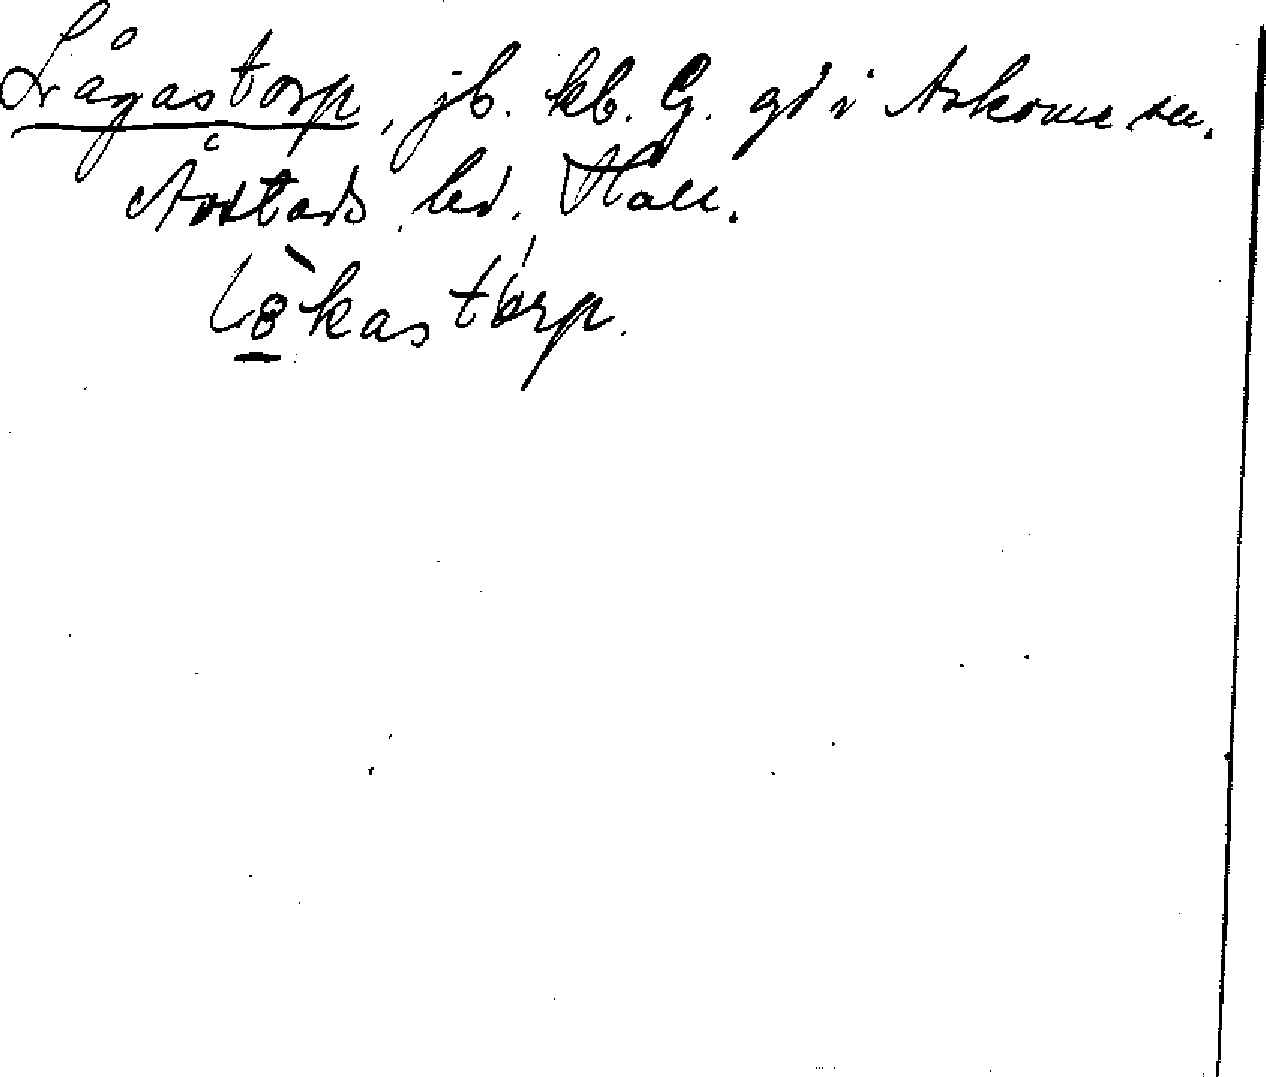 Lågastorp, jb. kb. G. gd i Askome sn.
Årstads hd. Hall.
Lökastorp.